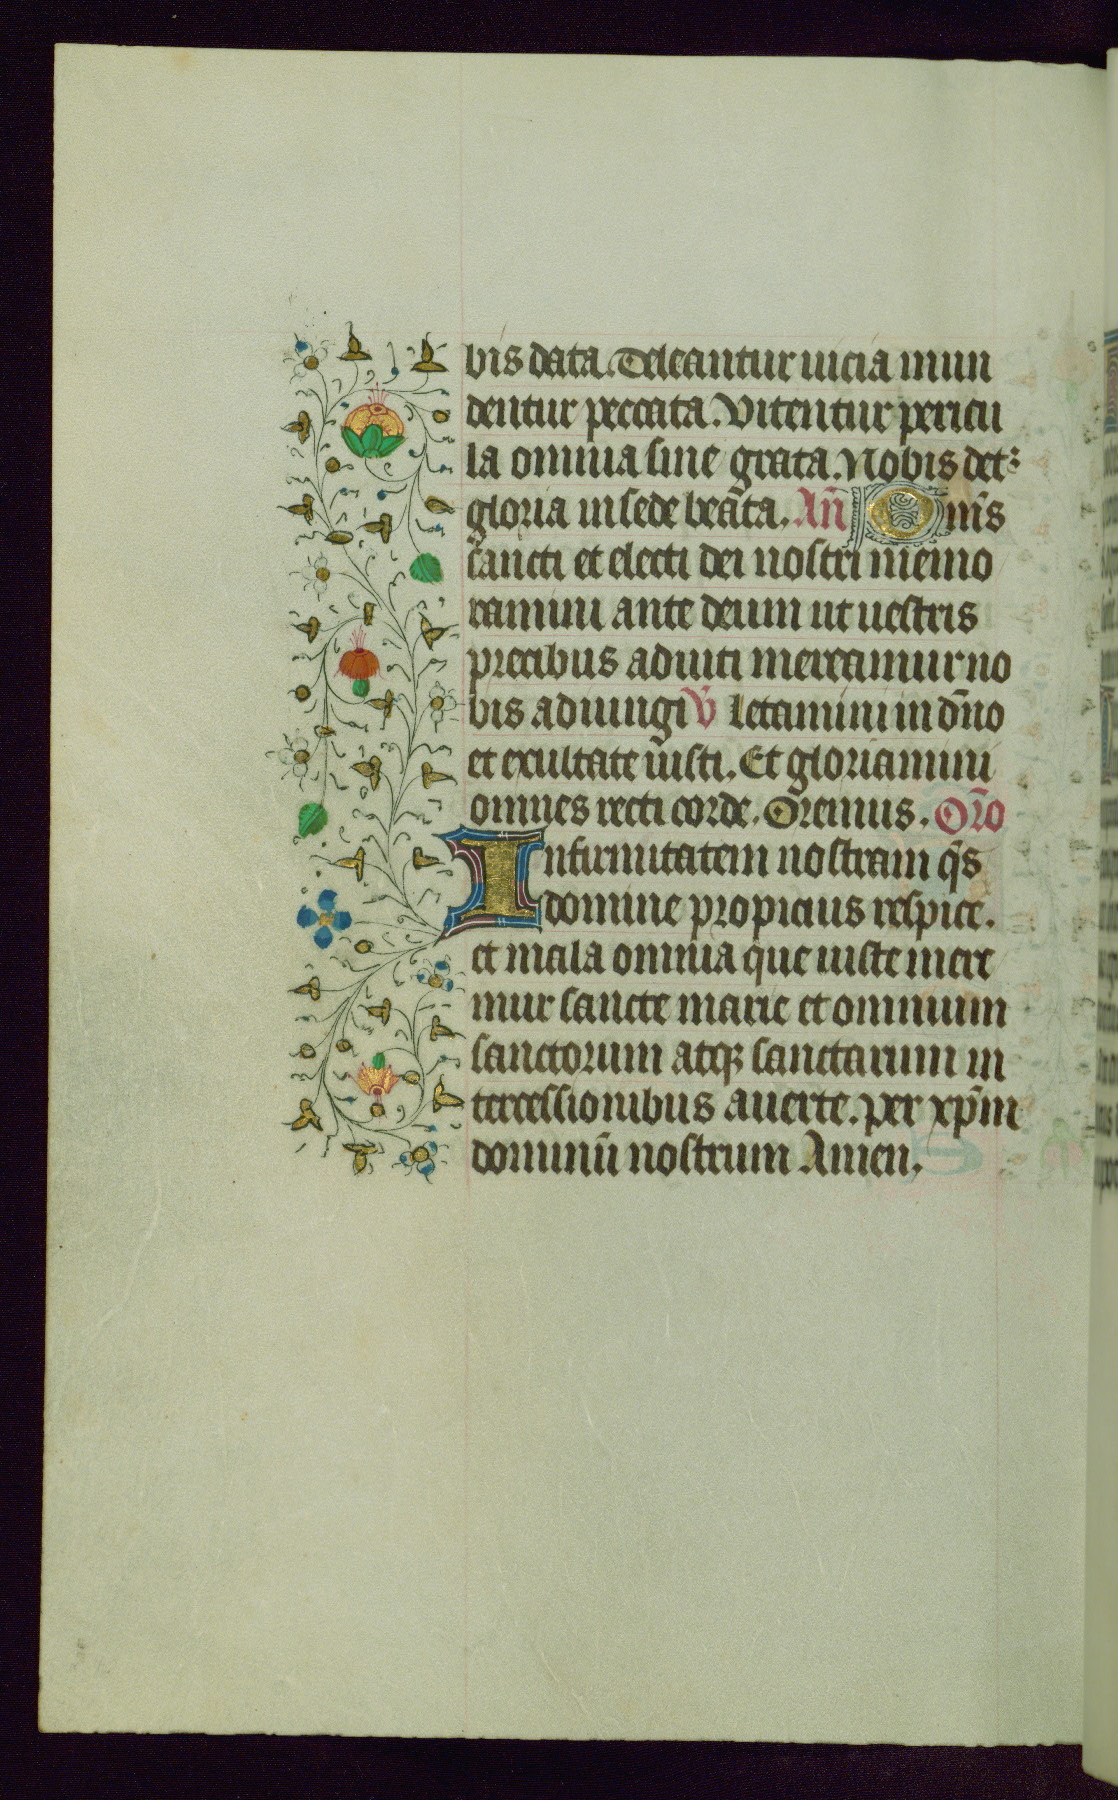 bis data. Deleantur uicia mun
dentur peccata. Vitentur pericu
la omnia sine grata. Nobis detᷣ
gloria in sede beata. An̄ Om̄s
sancti et electi dei nostri memo
ramini ante deum ut uestris
precibus adiuti mereamur no
bis adiungi V̄ letamini in dn̄o
et exultate iusti. Et gloriamini
omnes recti corde. Oremus. Or̄o
Infirmitatem nostram q̄s
domine propicius respice.
et mala omnia que iuste mere
mur sancte marie et omnium
sanctorum atqꝫ sanctarum in
tercessionibus auerte. per xp̄m
dominū nostrum Amen.